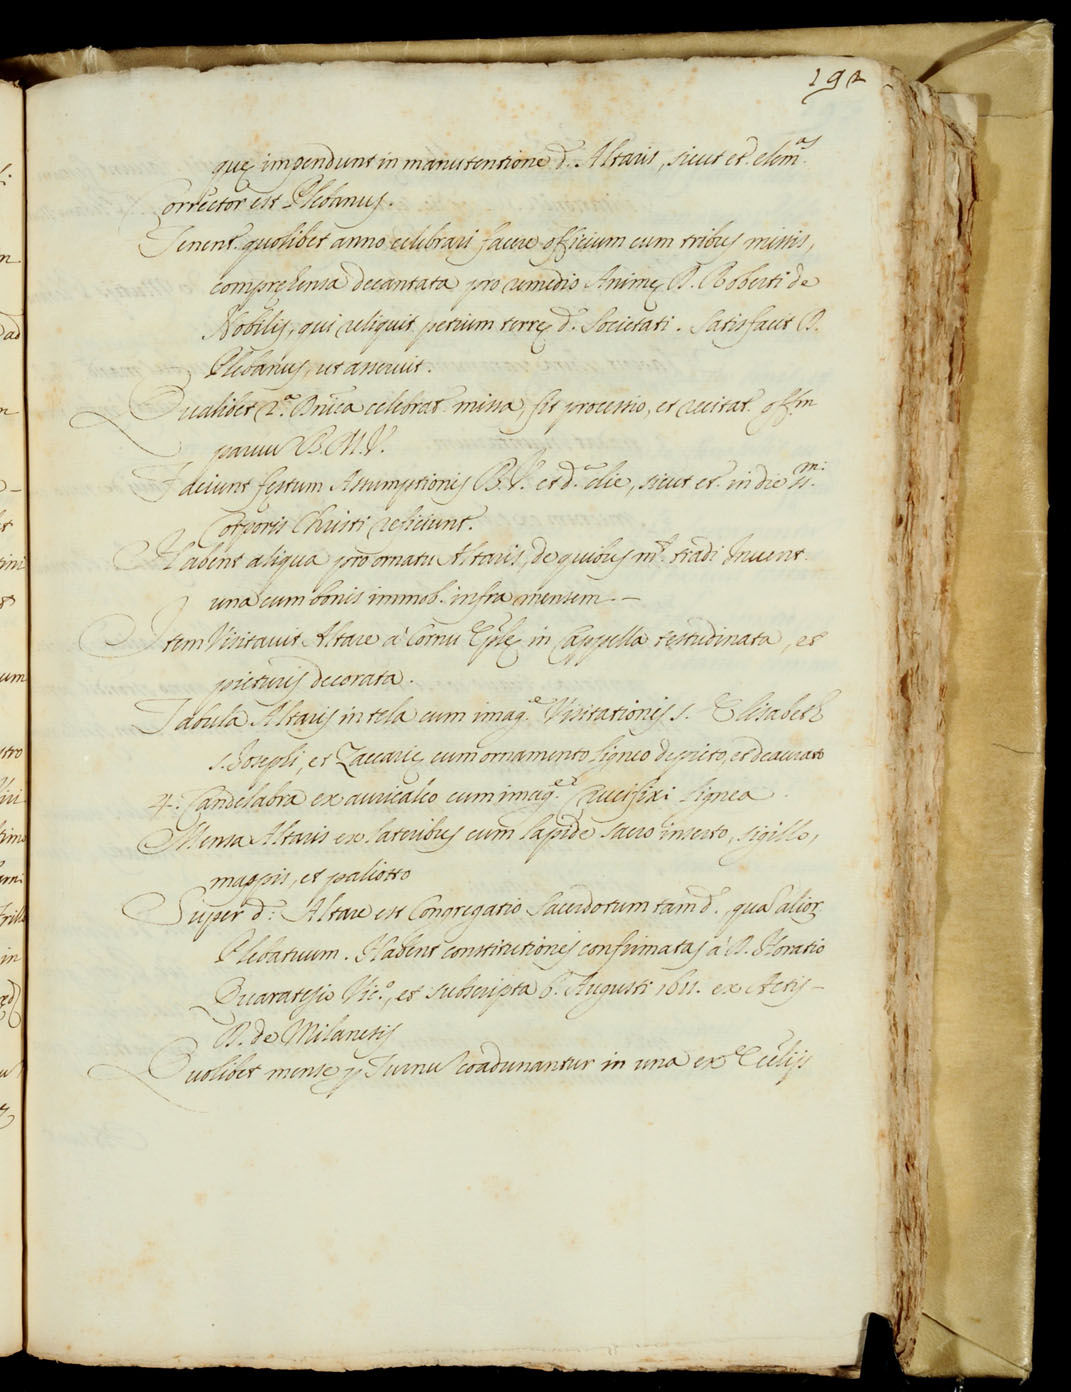 192
quę impendunt in manutentione d. Altaris, sicut et elem.as
Corrector est Plebanus.
Tenent. quolibet anno celebrari facere officium cum tribus missis,
comprehensa decantata pro remedio Animę D. Roberti de
Nobilis, qui reliquit petium terrę d. Societati. Satisfacit D.
Plebanus, ut asseruit.
Qualibet 2.a Dnica celebrat. missa, fit processio, et recitat. offm
parvu B.M.V.
Faciunt festum Assumptionis B.V. et d.a die, sicut et in die
Corporis Christi reficiunt.
Habent aliqua pro ornatu Altaris, de quibus m.t tradi Invent.
una cum bonis immob. infra mensem —
Item Visitavit Altare à Cornu Eplę in Cappella testudinata, et
picturis decorata.
Tabula Altaris in tela cum imag.e Visitationis s. Elisabeth
s. Joseph, et Zaccarię cum ornamento ligneo depicto, et deaurato
4. Candelabra ex auricalco cum imag.e Crucifixi lignea
Mensa Altaris ex lateribus cum lapide sacro inserto, sigillo,
mappis, et paliotto
Super d. Altare est Congregatio Sacerdotum tam d. qua alior.
Plebatuum. Habent constitutiones confirmatas à D. Horatio
Quaratesio Vic.o, et subscripta 6. Augusti 1611. ex Actis —
D. de Milanesis
Quolibet mense p Turnu coadunantur in una ex Ecclijs